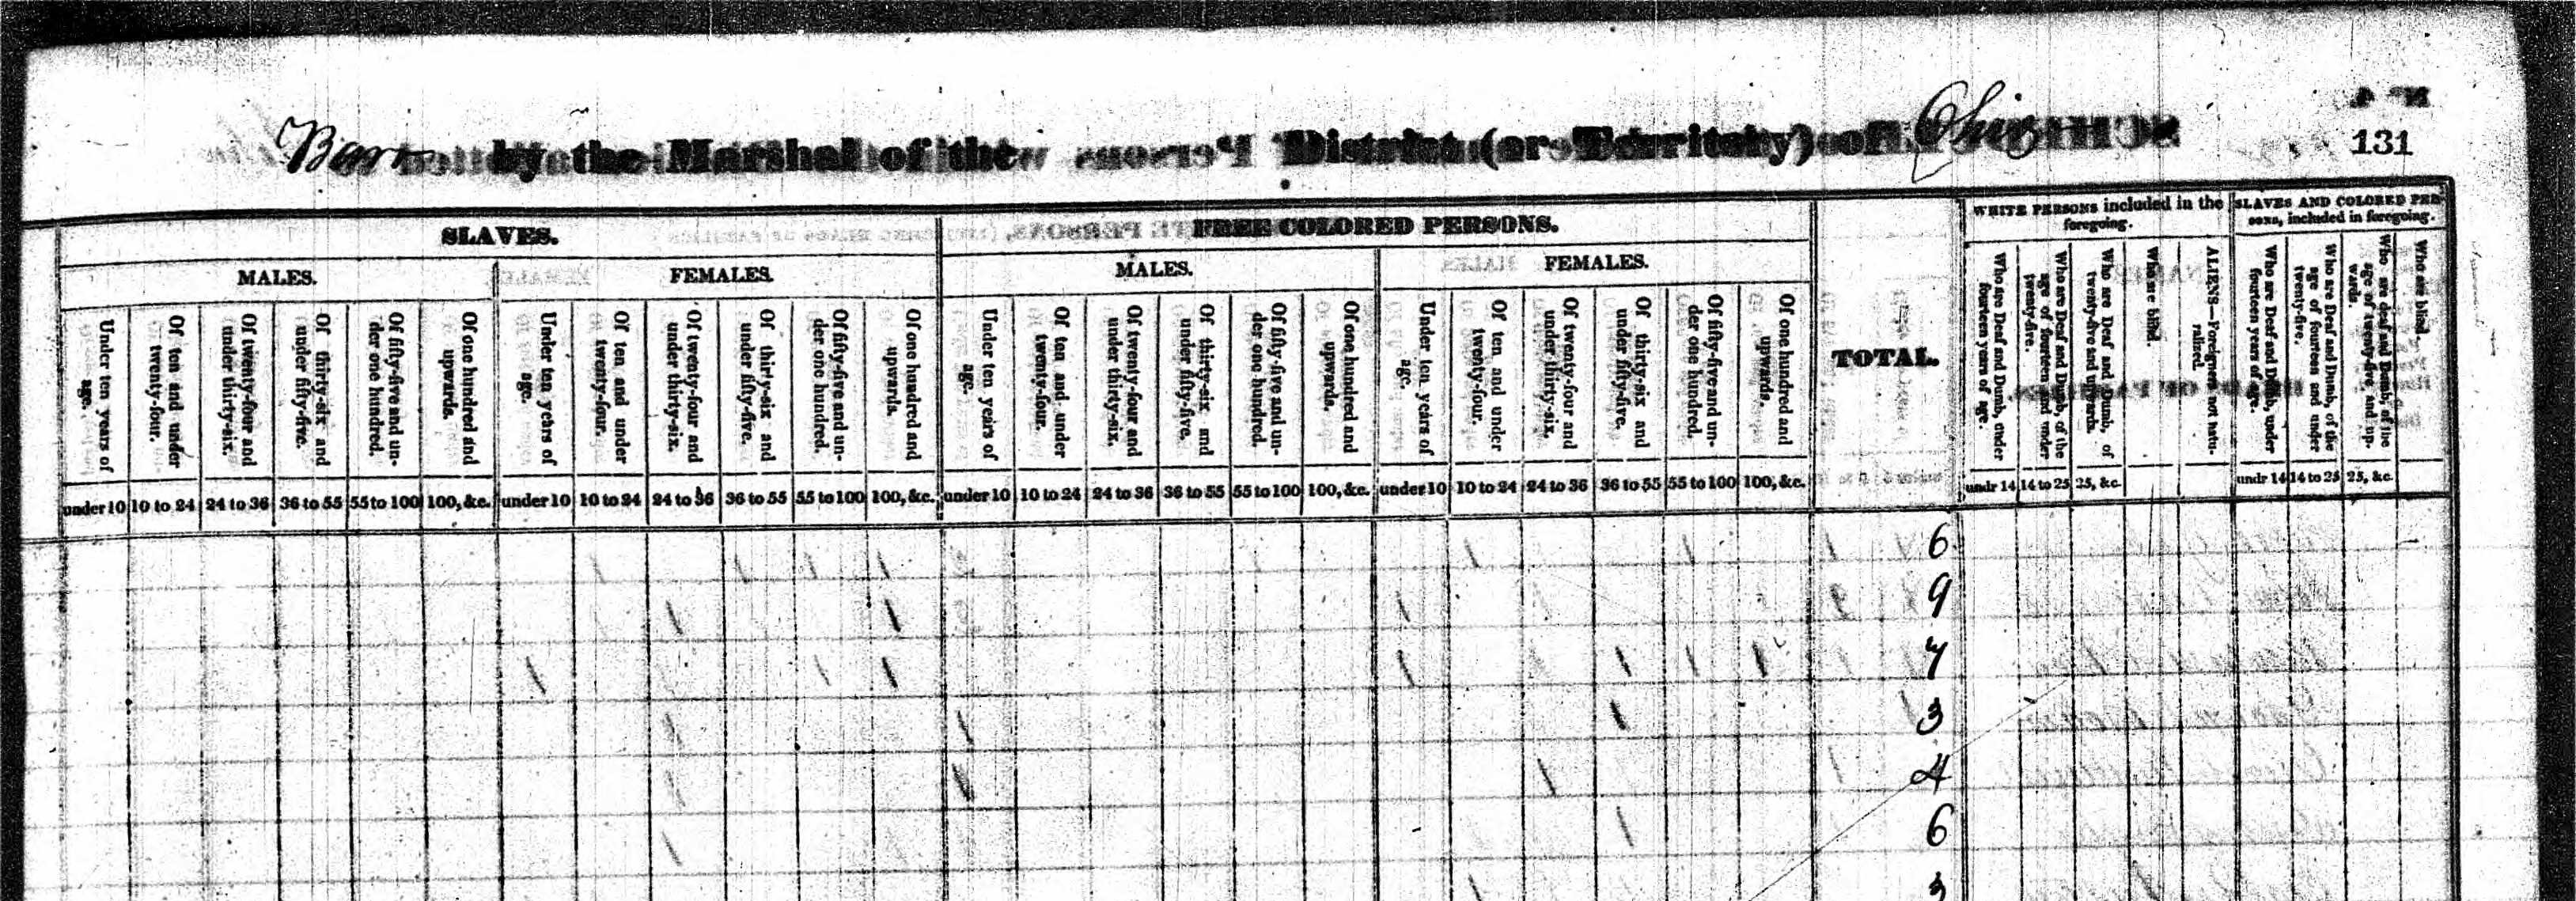 131
by the Marshal of the District (or Territory) of Ohio
SLAVES.
FREE COLORED PERSONS.
TOTAL.
WHITE PERSONS included in the foregoing.
SLAVES AND COLORED PERSONS, included in foregoing.
MALES. FEMALES. MALES. FEMALES.
Under ten years of age.
Of ten and under twenty-four.
Of twenty-four and under thirty-six.
Of thirty-six and under fifty-five.
Of fifty-five and under one hundred.
Of one hundred and upwards.
Under ten years of age.
Of ten and under twenty-four.
Of twenty-four and under thirty-six.
Of thirty-six and under fifty-five.
Of fifty-five and under one hundred.
Of one hundred and upwards.
Under ten years of age.
Of ten and under twenty-four.
Of twenty-four and under thirty-six.
Of thirty-six and under fifty-five.
Of fifty-five and under one hundred.
Of one hundred and upwards.
Under ten years of age.
Of ten and under twenty-four.
Of twenty-four and under thirty-six.
Of thirty-six and under fifty-five.
Of fifty-five and under one hundred.
Of one hundred and upwards.
Who are Deaf and Dumb, under fourteen years of age.
Who are Deaf and Dumb, of the age of fourteen and under twenty-five.
Who are Deaf and Dumb, of twenty-five and upwards.
Who are blind.
ALIENS—Foreigners not naturalized.
Who are Deaf and Dumb, under fourteen years of age.
Who are Deaf and Dumb, of the age of fourteen and under twenty-five.
Who are deaf and Dumb, of the age of twenty-five and upwards.
Who are blind.
under 10 10 to 24 24 to 36 36 to 55 55 to 100 100, &c. under 10 10 to 24 24 to 36 36 to 55 55 to 100 100, &c. under 10 10 to 24 24 to 36 36 to 55 55 to 100 100, &c. under 10 10 to 24 24 to 36 36 to 55 55 to 100 100, &c. undr 14 14 to 25 25, &c. undr 14 14 to 25 25, &c.
6
9
7
3
4
6
3